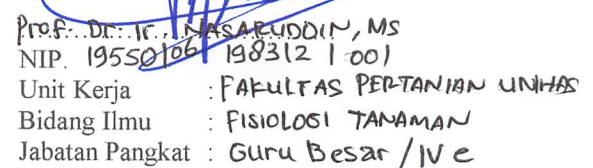 Prof. Dr. Ir. NASARUDDIN, MS
NIP. 19550106 198312 1 001
Unit Kerja : FAKULTAS PERTANIAN UNHAS
Bidang Ilmu : FISIOLOGI TANAMAN
Jabatan Pangkat : Guru Besar / IV e